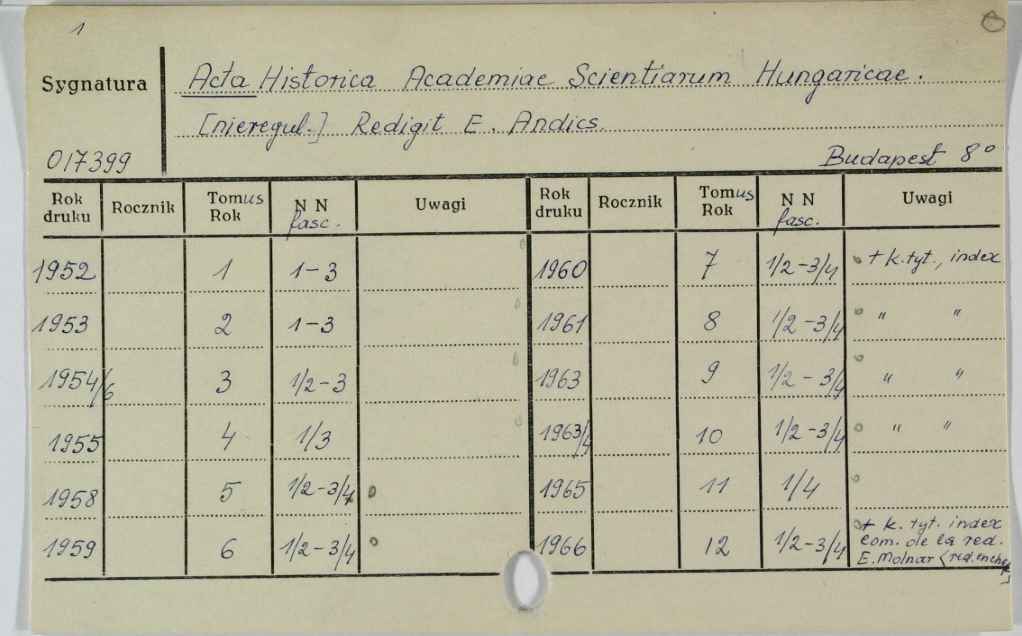 1
Sygnatura
Acta Historica Academiae Scientiarum Hungaricae.
[nieregul.] Redigit E. Andics.
017399
Budapest 8°
Rok druku Rocznik Tomus Rok N N fasc. Uwagi Rok druku Rocznik Tomus Rok N N fasc. Uwagi
1952 1 1-3 1960 7 1/2-3/4 + k. tyt., index
1953 2 1-3 1961 8 1/2-3/4 " "
1954/6 3 1/2-3 1963 9 1/2-3/4 " "
1955 4 1/3 1963/4 10 1/2-3/4 " "
1958 5 1/2-3/4 1965 11 1/4
1959 6 1/2-3/4 1966 12 1/2-3/4 + k. tyt. index
com. de la red.
E. Molnar (red. en chef